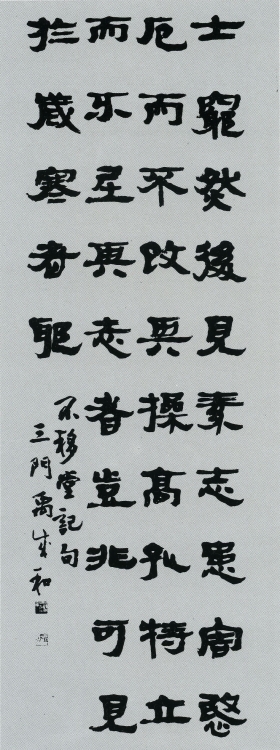 士窮然後見素志患害愍
厄而不改其操高孔特立
而不屈其志者豈非可見
於歲寒者耶
不移堂記句
三門禹成和